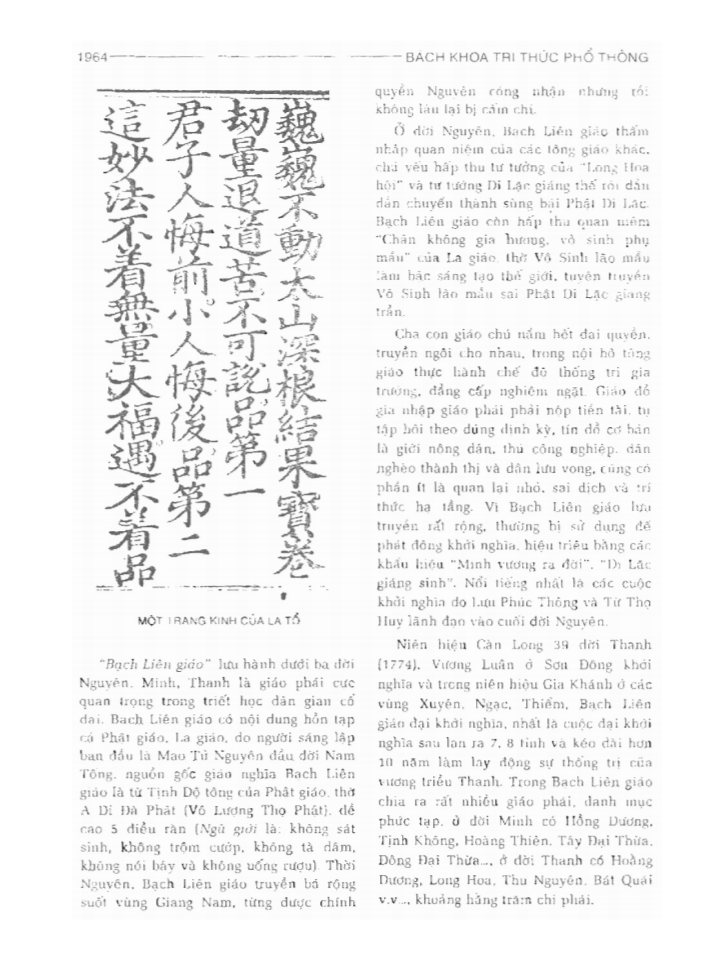 1964
BACH KHOA TRI THỨC PHỔ THÔNG
巍巍不動太山深根結果寶卷
劫量退道苦不可説品第一
君子人悔前小人悔後品第二
這妙法不着無量大福遇不着品
MỘT TRANG KINH CỦA LA TỔ
"Bạch Liên giáo" lưu hành dưới ba đời
Nguyên, Minh, Thanh là giáo phái cực
quan trọng trong triết học dân gian cổ
đại. Bạch Liên giáo có nội dung hỗn tạp
cả Phật giáo, La giáo, do người sáng lập
ban đầu là Mao Tử Nguyên đầu đời Nam
Tống, nguồn gốc giáo nghĩa Bạch Liên
giáo là từ Tịnh Độ tông của Phật giáo, thờ
A Di Đà Phật (Vô Lượng Thọ Phật), đề
cao 5 điều răn (Ngũ giới là: không sát
sinh, không trộm cướp, không tà dâm,
không nói bậy và không uống rượu). Thời
Nguyên, Bạch Liên giáo truyền bá rộng
suốt vùng Giang Nam, từng được chính
quyền Nguyên công nhận nhưng rồi
không lâu lại bị cấm chỉ.
Ở đời Nguyên, Bạch Liên giáo thấm
nhập quan niệm của các tông giáo khác,
chủ yếu hấp thu tư tưởng của "Long Hoa
hội" và tư tưởng Di Lặc giáng thế rồi dần
dần chuyển thành sùng bái Phật Di Lặc.
Bạch Liên giáo còn hấp thu quan niệm
"Chân không gia hương, vô sinh phụ
mẫu" của La giáo, thờ Vô Sinh lão mẫu
làm bậc sáng tạo thế giới, tuyên truyền
Vô Sinh lão mẫu sai Phật Di Lặc giáng
trần.
Cha con giáo chủ nắm hết đại quyền,
truyền ngôi cho nhau, trong nội bộ tông
giáo thực hành chế độ thống trị gia
trưởng, đẳng cấp nghiêm ngặt. Giáo đồ
gia nhập giáo phái phải nộp tiền tài, tụ
tập hội theo đúng định kỳ, tín đồ cơ bản
là giới nông dân, thủ công nghiệp, dân
nghèo thành thị và dân lưu vong, cũng có
phần ít là quan lại nhỏ, sai dịch và trí
thức hạ tầng. Vì Bạch Liên giáo lưu
truyền rất rộng, thường bị sử dụng để
phát động khởi nghĩa, hiệu triệu bằng các
khẩu hiệu "Minh vương ra đời", "Di Lặc
giáng sinh". Nổi tiếng nhất là các cuộc
khởi nghĩa do Lưu Phúc Thông và Từ Thọ
Huy lãnh đạo vào cuối đời Nguyên.
Niên hiệu Càn Long 39 đời Thanh
(1774), Vương Luân ở Sơn Đông khởi
nghĩa và trong niên hiệu Gia Khánh ở các
vùng Xuyên, Ngạc, Thiểm, Bạch Liên
giáo đại khởi nghĩa, nhất là cuộc đại khởi
nghĩa sau lan ra 7, 8 tỉnh và kéo dài hơn
10 năm làm lay động sự thống trị của
vương triều Thanh. Trong Bạch Liên giáo
chia ra rất nhiều giáo phái, danh mục
phức tạp, ở đời Minh có Hồng Dương,
Tịnh Không, Hoàng Thiên, Tây Đại Thừa,
Đông Đại Thừa..., ở đời Thanh có Hoằng
Dương, Long Hoa, Thu Nguyên, Bát Quái
v.v..., khoảng hàng trăm chi phái.